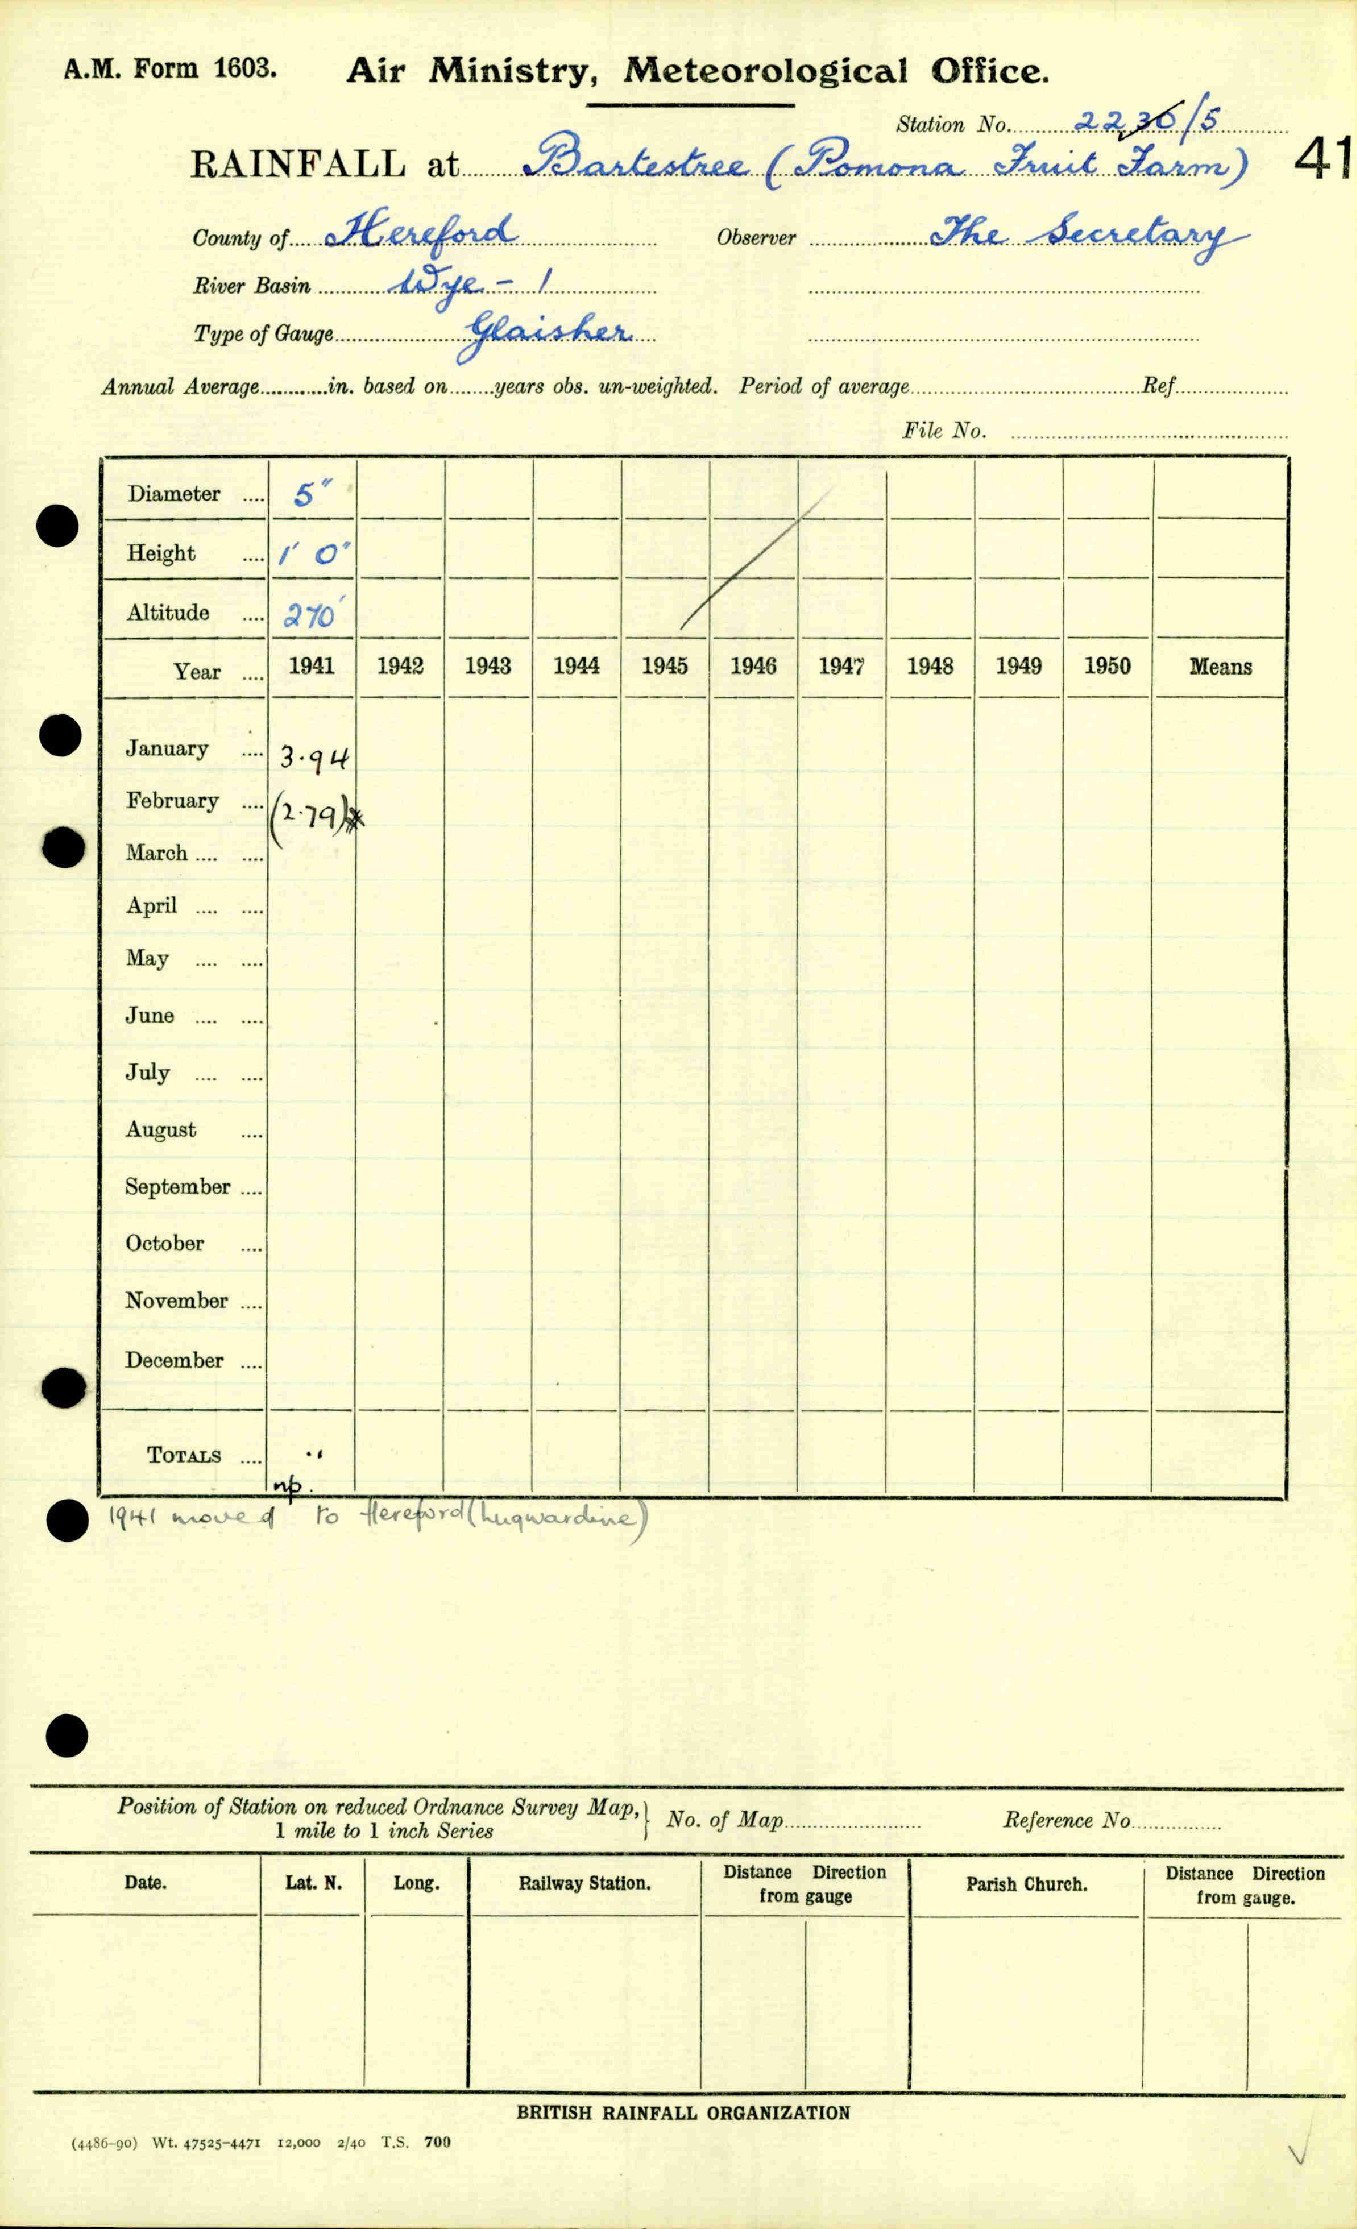 A.M. Form 1603. Air Ministry, Meteorological Office.
Station No. 2230/5
RAINFALL at Bartestree (Pomona Fruit Farm) 41
County of Hereford Observer The Secretary
River Basin Wye - 1
Type of Gauge Glaisher
Annual Average in. based on years obs. un-weighted. Period of average Ref.
File No.
Diameter .... 5"
Height .... 1' 0"
Altitude .... 270'
Year .... 1941 1942 1943 1944 1945 1946 1947 1948 1949 1950 Means
January .... 3.94
February .... (2.79)*
March .... ....
April .... ....
May .... ....
June .... ....
July .... ....
August ....
September ....
October ....
November ....
December ....
TOTALS .... ..
np.
1941 moved to Hereford (Lugwardine)
Position of Station on reduced Ordnance Survey Map,} No. of Map Reference No.
1 mile to 1 inch Series
Date. Lat. N. Long. Railway Station. Distance Direction from gauge Parish Church. Distance Direction from gauge.
BRITISH RAINFALL ORGANIZATION
(4486-90) Wt. 47525-4471 12,000 2/40 T.S. 700